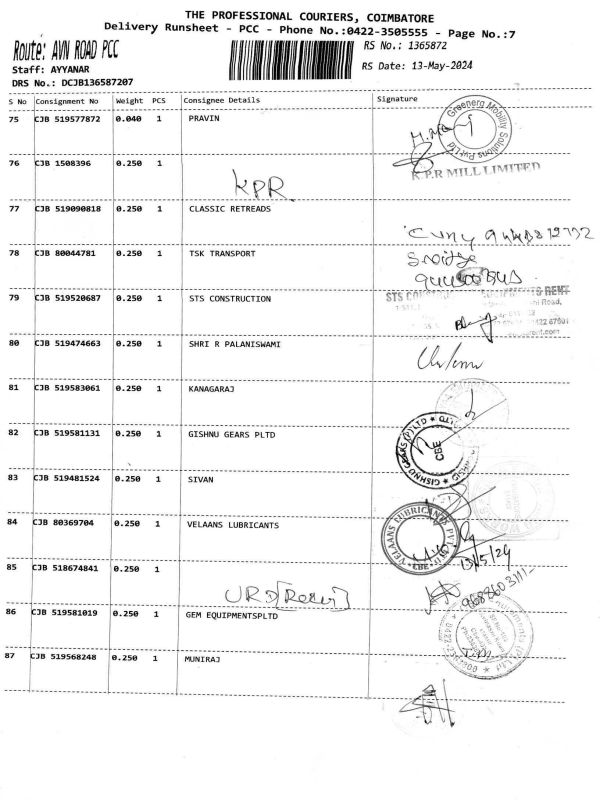 THE PROFESSIONAL COURIERS, COIMBATORE
Delivery Runsheet - PCC - Phone No.:0422-3505555 - Page No.:7
Route: AVN ROAD PCC
RS No.: 1365872
Staff: AYYANAR
RS Date: 13-May-2024
DRS No.: DCJB136587207
S No Consignment No Weight PCS Consignee Details Signature
75 CJB 519577872 0.040 1 PRAVIN
Greenerg Mobility Solutions Pvt Ltd
76 CJB 1508396 0.250 1
K.P.R MILL LIMITED
KPR
77 CJB 519090818 0.250 1 CLASSIC RETREADS
78 CJB 80044781 0.250 1 TSK TRANSPORT
79 CJB 519520687 0.250 1 STS CONSTRUCTION
80 CJB 519474663 0.250 1 SHRI R PALANISWAMI
81 CJB 519583061 0.250 1 KANAGARAJ
82 CJB 519581131 0.250 1 GISHNU GEARS PLTD
GISHNU GEARS (P) LTD
CBE
83 CJB 519481524 0.250 1 SIVAN
84 CJB 80369704 0.250 1 VELAANS LUBRICANTS
VELAANS LUBRICANTS PVT LTD
CBE
13/5/24
85 CJB 518674841 0.250 1
86 CJB 519581019 0.250 1 GEM EQUIPMENTSPLTD
87 CJB 519568248 0.250 1 MUNIRAJ